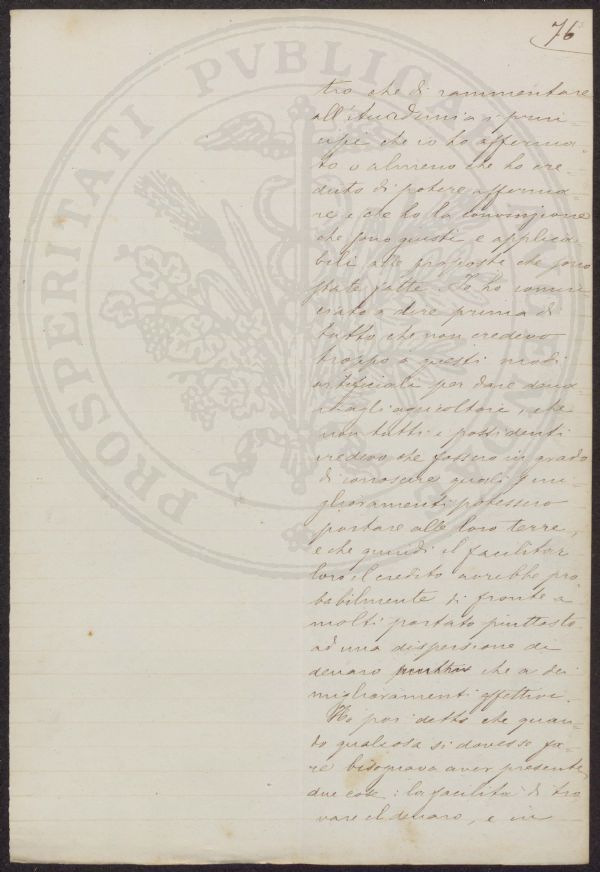 76
PROSPERITATI PVBLICAE
tro che di rammentare
all'Accademia i prin-
cipi che io ho afferma-
to o almeno che ho cre-
duto di potere afferma-
re, e che ho la convinzione
che sono giusti e applica-
bili alle proposte che sono
state fatte. Io ho comin-
ciato a dire prima di
tutto che non credevo
troppo a questi modi
artificiali per dare dena-
ri agli agricoltori, che
non tutti i possidenti
credevo che fossero in grado
di conoscere quali mi-
glioramenti potessero
portare alle loro terre,
e che quindi il facilitar
loro il credito avrebbe pro-
babilmente di fronte a
molti portato piuttosto
ad una dispersione di
denaro che a dei
miglioramenti effettivi.
Ho poi detto che quan-
do qualcosa si dovesse fa-
re bisognava aver presente
due cose: la facilità di tro-
vare il denaro, e in